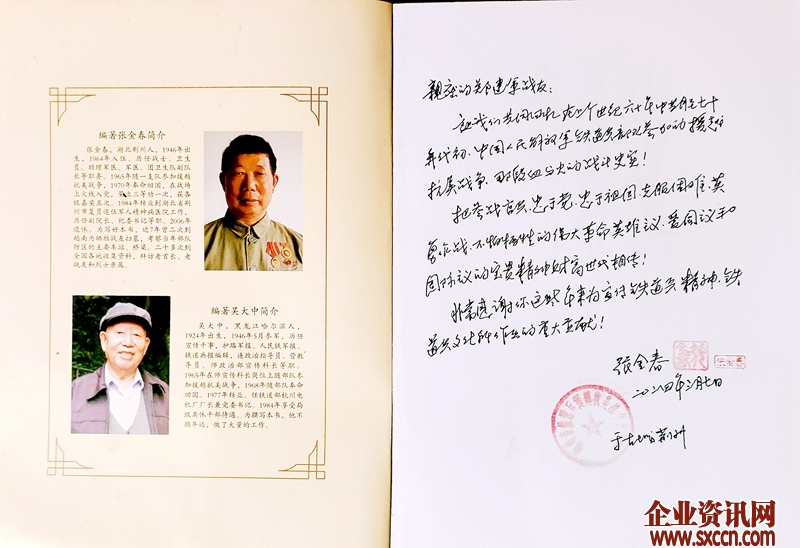 编著张金春简介
张金春，湖北荆州人，1946年出
生，1964年入伍，历任战士、卫生
员、助理军医、军医、团卫生队副队
长等职务。1965年随一支队参加援越
抗美战争，1970年奉命回国，在战场
上火线入党，荣立三等功一次，获各
级嘉奖五次。1984年转业到湖北省荆
州市复员退伍军人精神病医院工作，
历任副院长、纪委书记等职。2006年
退休。为写好本书，近7年曾二次到
越南为牺牲战友扫墓，考察当年部队
防区的主要车站、桥梁。二十多次到
全国各地收集资料，拜访老首长、老
战友和烈士亲属。
编著吴大中简介
吴大中，黑龙江哈尔滨人，
1924年出生，1946年5月参军，历任
宣传干事，护路军报、人民铁军报、
铁道兵报编辑，连政治指导员、营教
导员、师政治部宣传科长等职。
1965年在师宣传科长岗位上随部队参
加援越抗美战争，1968年随部队奉命
回国。1977年转业，任铁道部杭州电
机厂厂长兼党委书记。1984年享受局
级离休干部待遇。为撰写本书，他不
顾年迈，做了大量的工作。
亲密的郑建军战友：
让我们共同回忆在上个世纪六十年中期至七十
年代初，中国人民解放军铁道兵部队参加的援越
抗美战争，那段血与火的战斗史实！
把参战官兵忠于党、忠于祖国、克服困难、英
勇作战、不怕牺牲的伟大革命英雄主义、爱国主义和
国际主义的宝贵精神财富世代相传！
非常感谢你这些年来为宣传铁道兵精神、铁
道兵文化所作出的重大贡献！
张金春
二〇二四年三月七日
于古城荆州
企业资讯网
www.sxccn.com